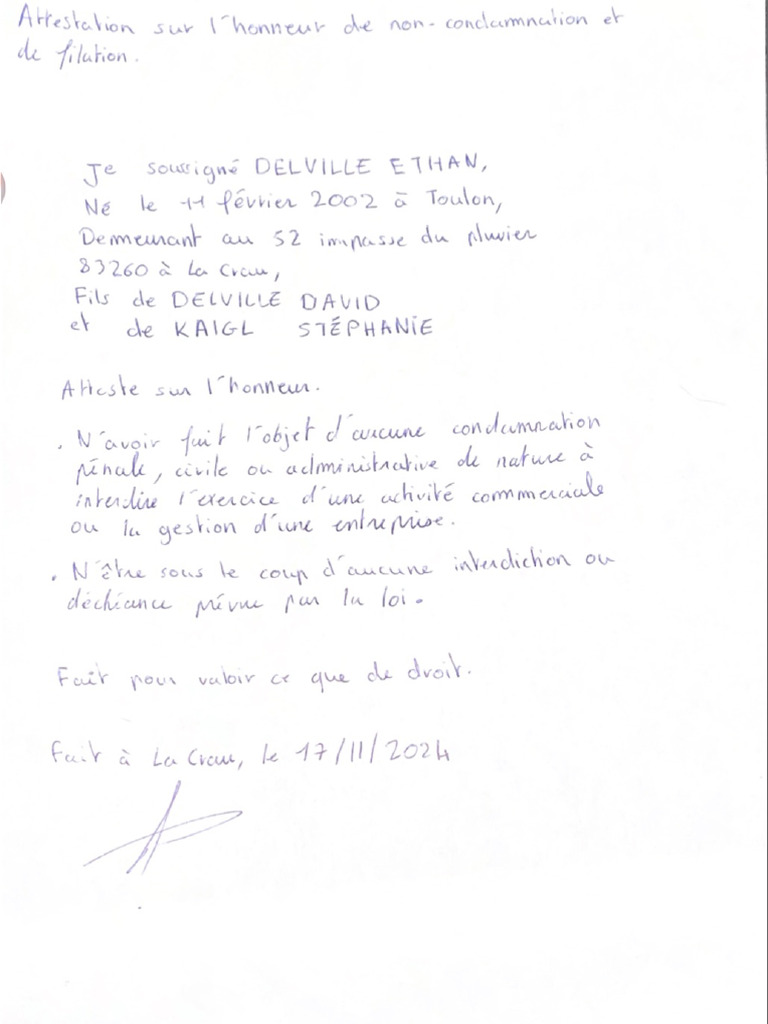 Attestation sur l'honneur de non-condamnation et
de filation.
Je soussigné DELVILLE ETHAN,
Né le 11 février 2002 à Toulon,
Demeurant au 52 impasse du pluvier
83260 à La Crau,
Fils de DELVILLE DAVID
et de KAIGL STÉPHANIE
Atteste sur l'honneur.
. N'avoir fait l'objet d'aucune condamnation
pénale, civile ou administrative de nature à
interdire l'exercice d'une activité commerciale
ou la gestion d'une entreprise.
. N'être sous le coup d'aucune interdiction ou
déchéance prévue par la loi.
Fait pour valoir ce que de droit.
Fait à La Crau, le 17/11/2024